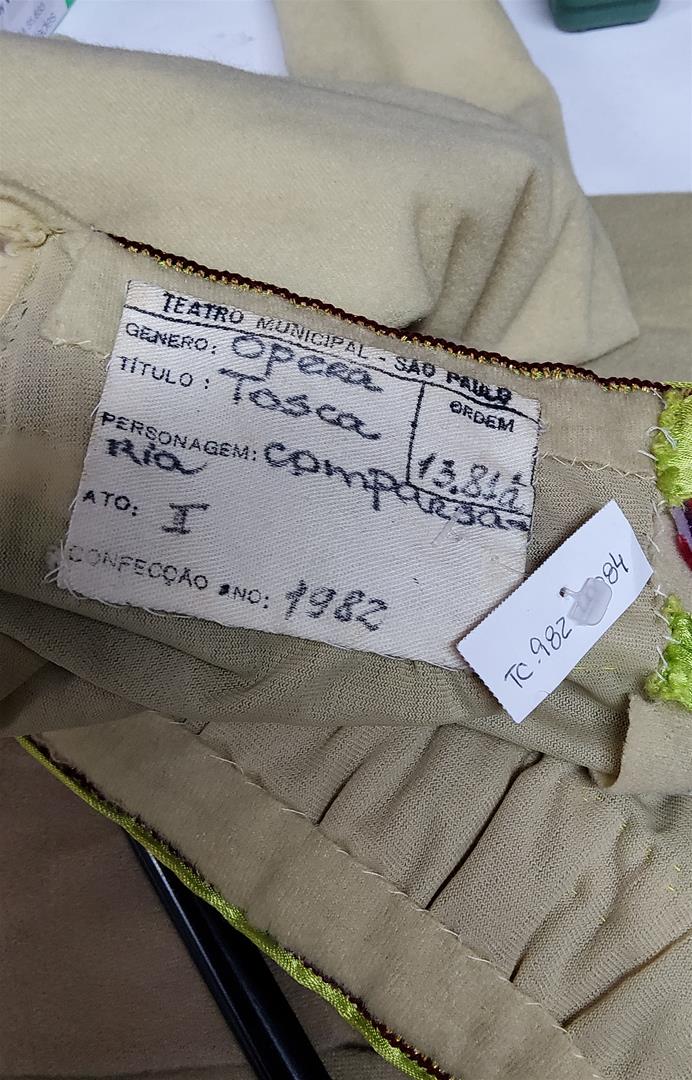 TEATRO MUNICIPAL - SÃO PAULO
GENERO: Opera
TÍTULO: Tosca
ORDEM
PERSONAGEM: comparsa-
Ria
ATO: I
CONFECÇÃO ANO: 1982
TC.982
84